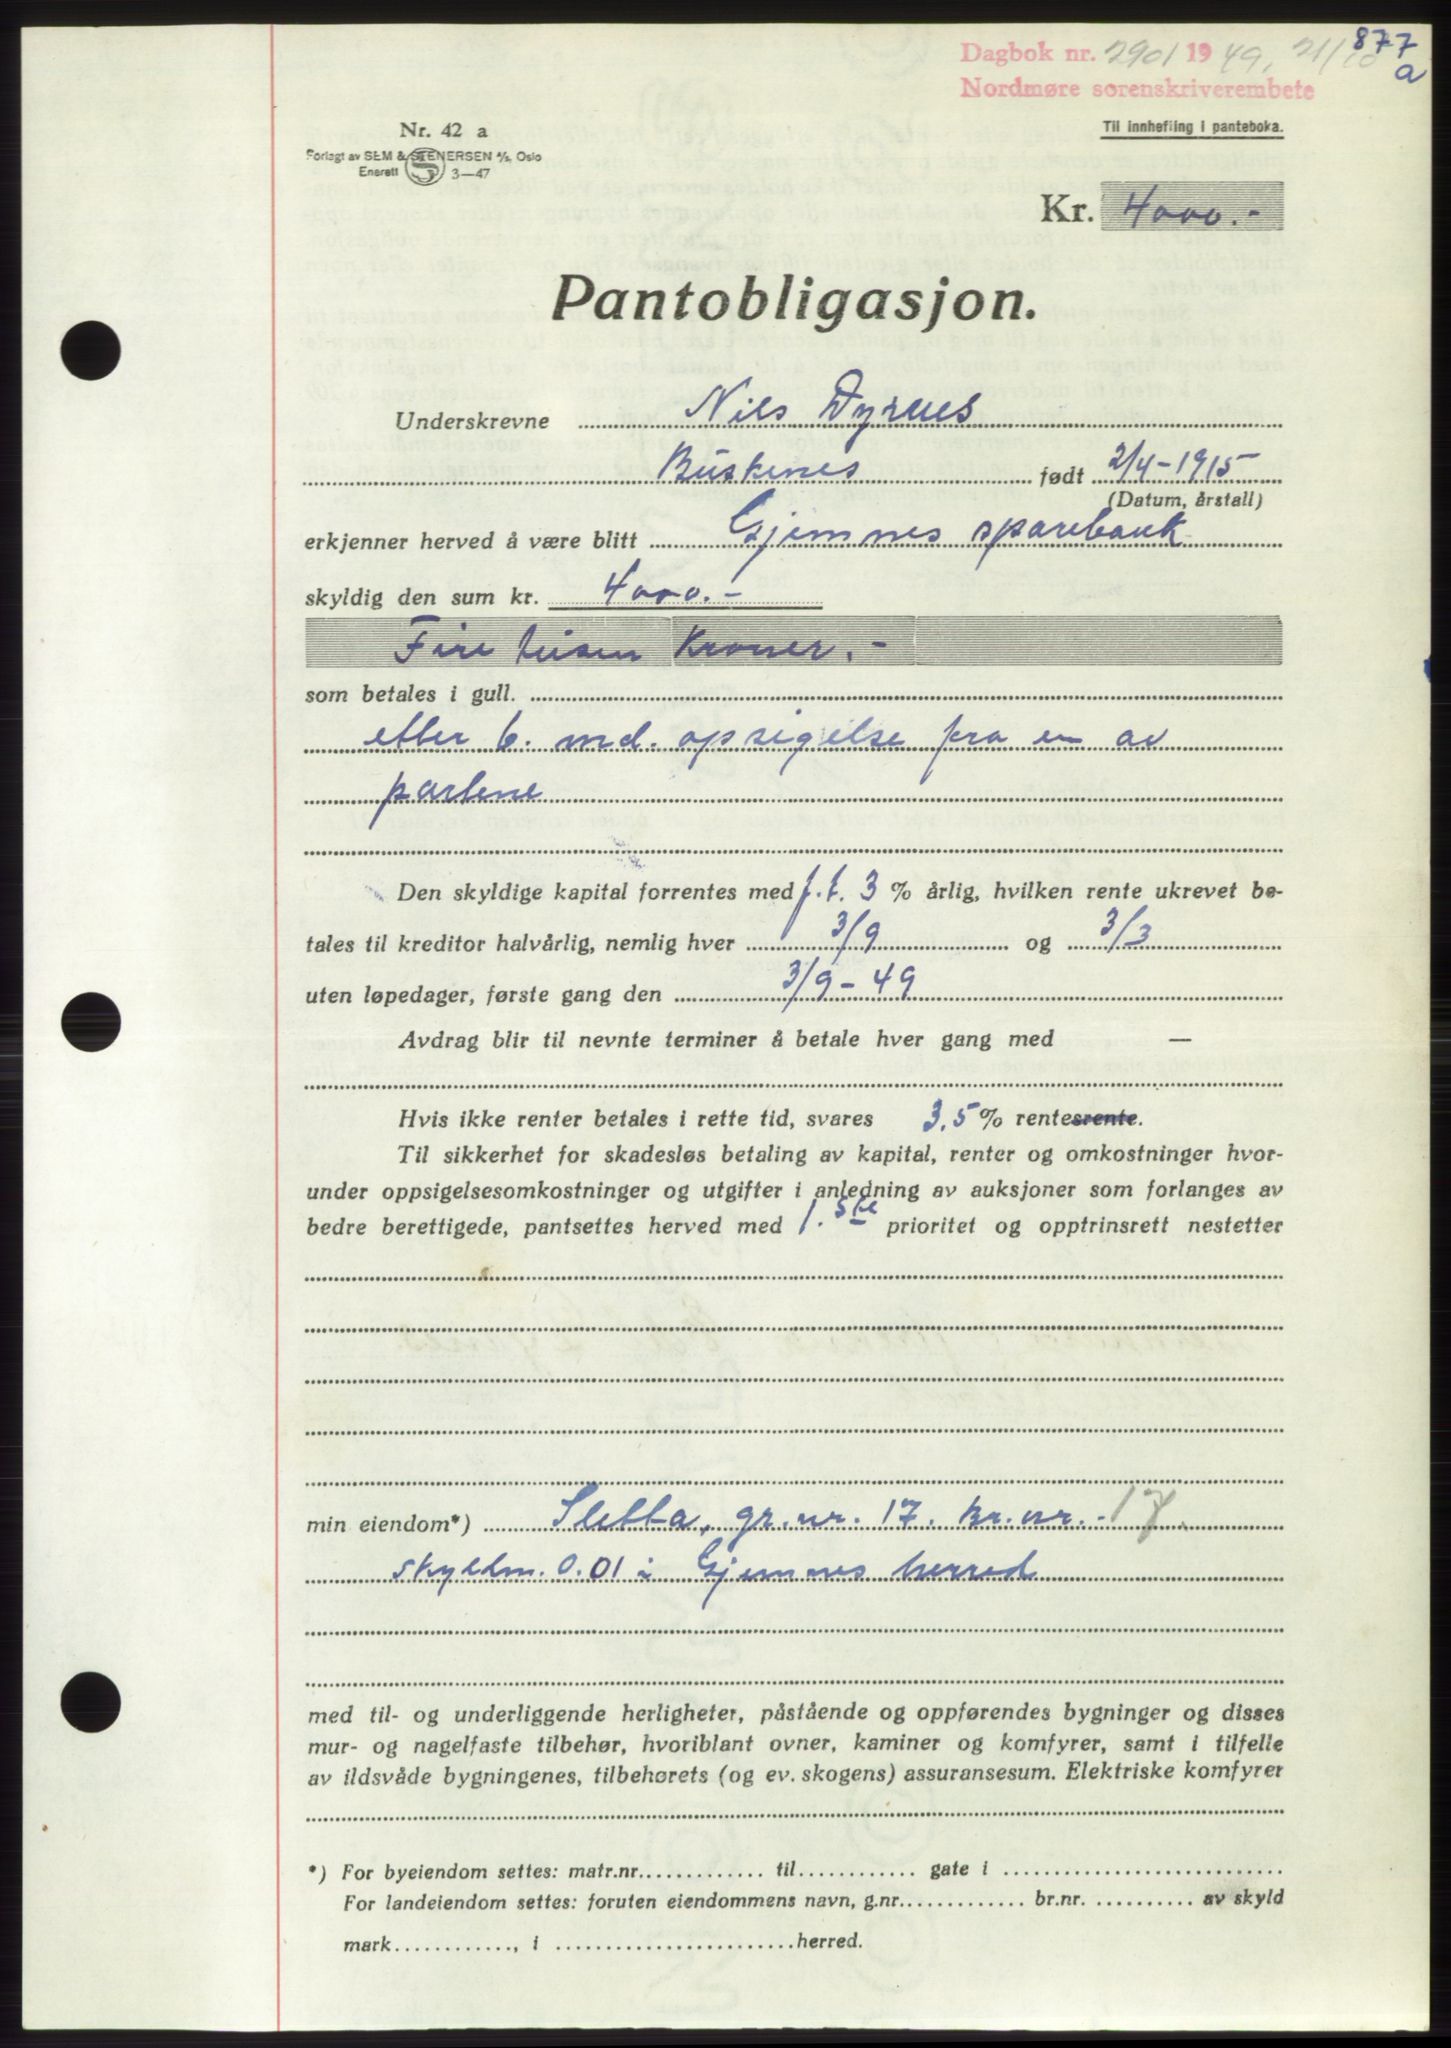 877
a
Dagbok nr. 2901 1949, 21/10
Nordmøre sorenskriverembete
Til innhefting i panteboka.
Nr. 42 a
Forlagt av SEM & STENERSEN A/S, Oslo
Enerett S 3—47
Kr. 4000.-
Pantobligasjon.
Underskrevne Nils Dyrnes
Buskenes født 2/4-1915
(Datum, årstall)
erkjenner herved å være blitt Gjemnes sparebank
skyldig den sum kr. 4000.-
Fire tusen Kroner.-
som betales i gull.
etter 6. md. opsigelse fra en av
partene
Den skyldige kapital forrentes med f.t. 3 % årlig, hvilken rente ukrevet be-
tales til kreditor halvårlig, nemlig hver 3/9 og 3/3
uten løpedager, første gang den 3/9-49
Avdrag blir til nevnte terminer å betale hver gang med —
Hvis ikke renter betales i rette tid, svares 3.5 % rentesrente.
Til sikkerhet for skadesløs betaling av kapital, renter og omkostninger hvor-
under oppsigelsesomkostninger og utgifter i anledning av auksjoner som forlanges av
bedre berettigede, pantsettes herved med 1.ste prioritet og opptrinsrett nestetter
min eiendom*) Sletta, gr.nr. 17. br.nr. -17.
skyldm. 0.01 i Gjemnes herred
med til- og underliggende herligheter, påstående og oppførendes bygninger og disses
mur- og nagelfaste tilbehør, hvoriblant ovner, kaminer og komfyrer, samt i tilfelle
av ildsvåde bygningenes, tilbehørets (og ev. skogens) assuransesum. Elektriske komfyrer
*) For byeiendom settes: matr.nr. til gate i
For landeiendom settes: foruten eiendommens navn, g.nr. br.nr. av skyld
mark, i herred.